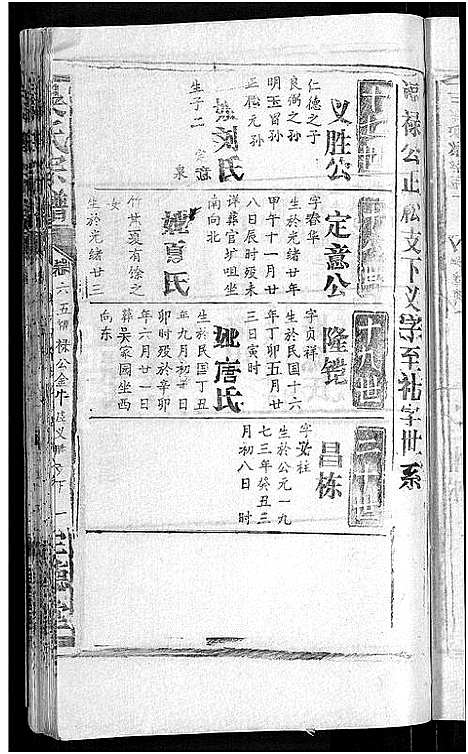 禄公正松支下义字至祉字世系
义胜公
仁德之子
良弼之孙
明玉曾孙
正松元孙
刘氏
生子二 定意
泉
定意公
字春华
生於光绪廿年
甲午十一月廿
八日辰时殁未
详葬官圹咀坐
南向北
夏氏
竹其夏有余之
女
生於光绪廿三
十八世
隆铠
字贞祥
生於民国十六
年丁卯五月廿
三日寅时
唐氏
生於民国丁丑
年九月初廿日
卯时殁於辛卯
年六月廿一日
葬吴家园坐西
向东
昌栋
生於公元一九
七三年癸丑三
月初八日 时
吴氏宗谱
卷六